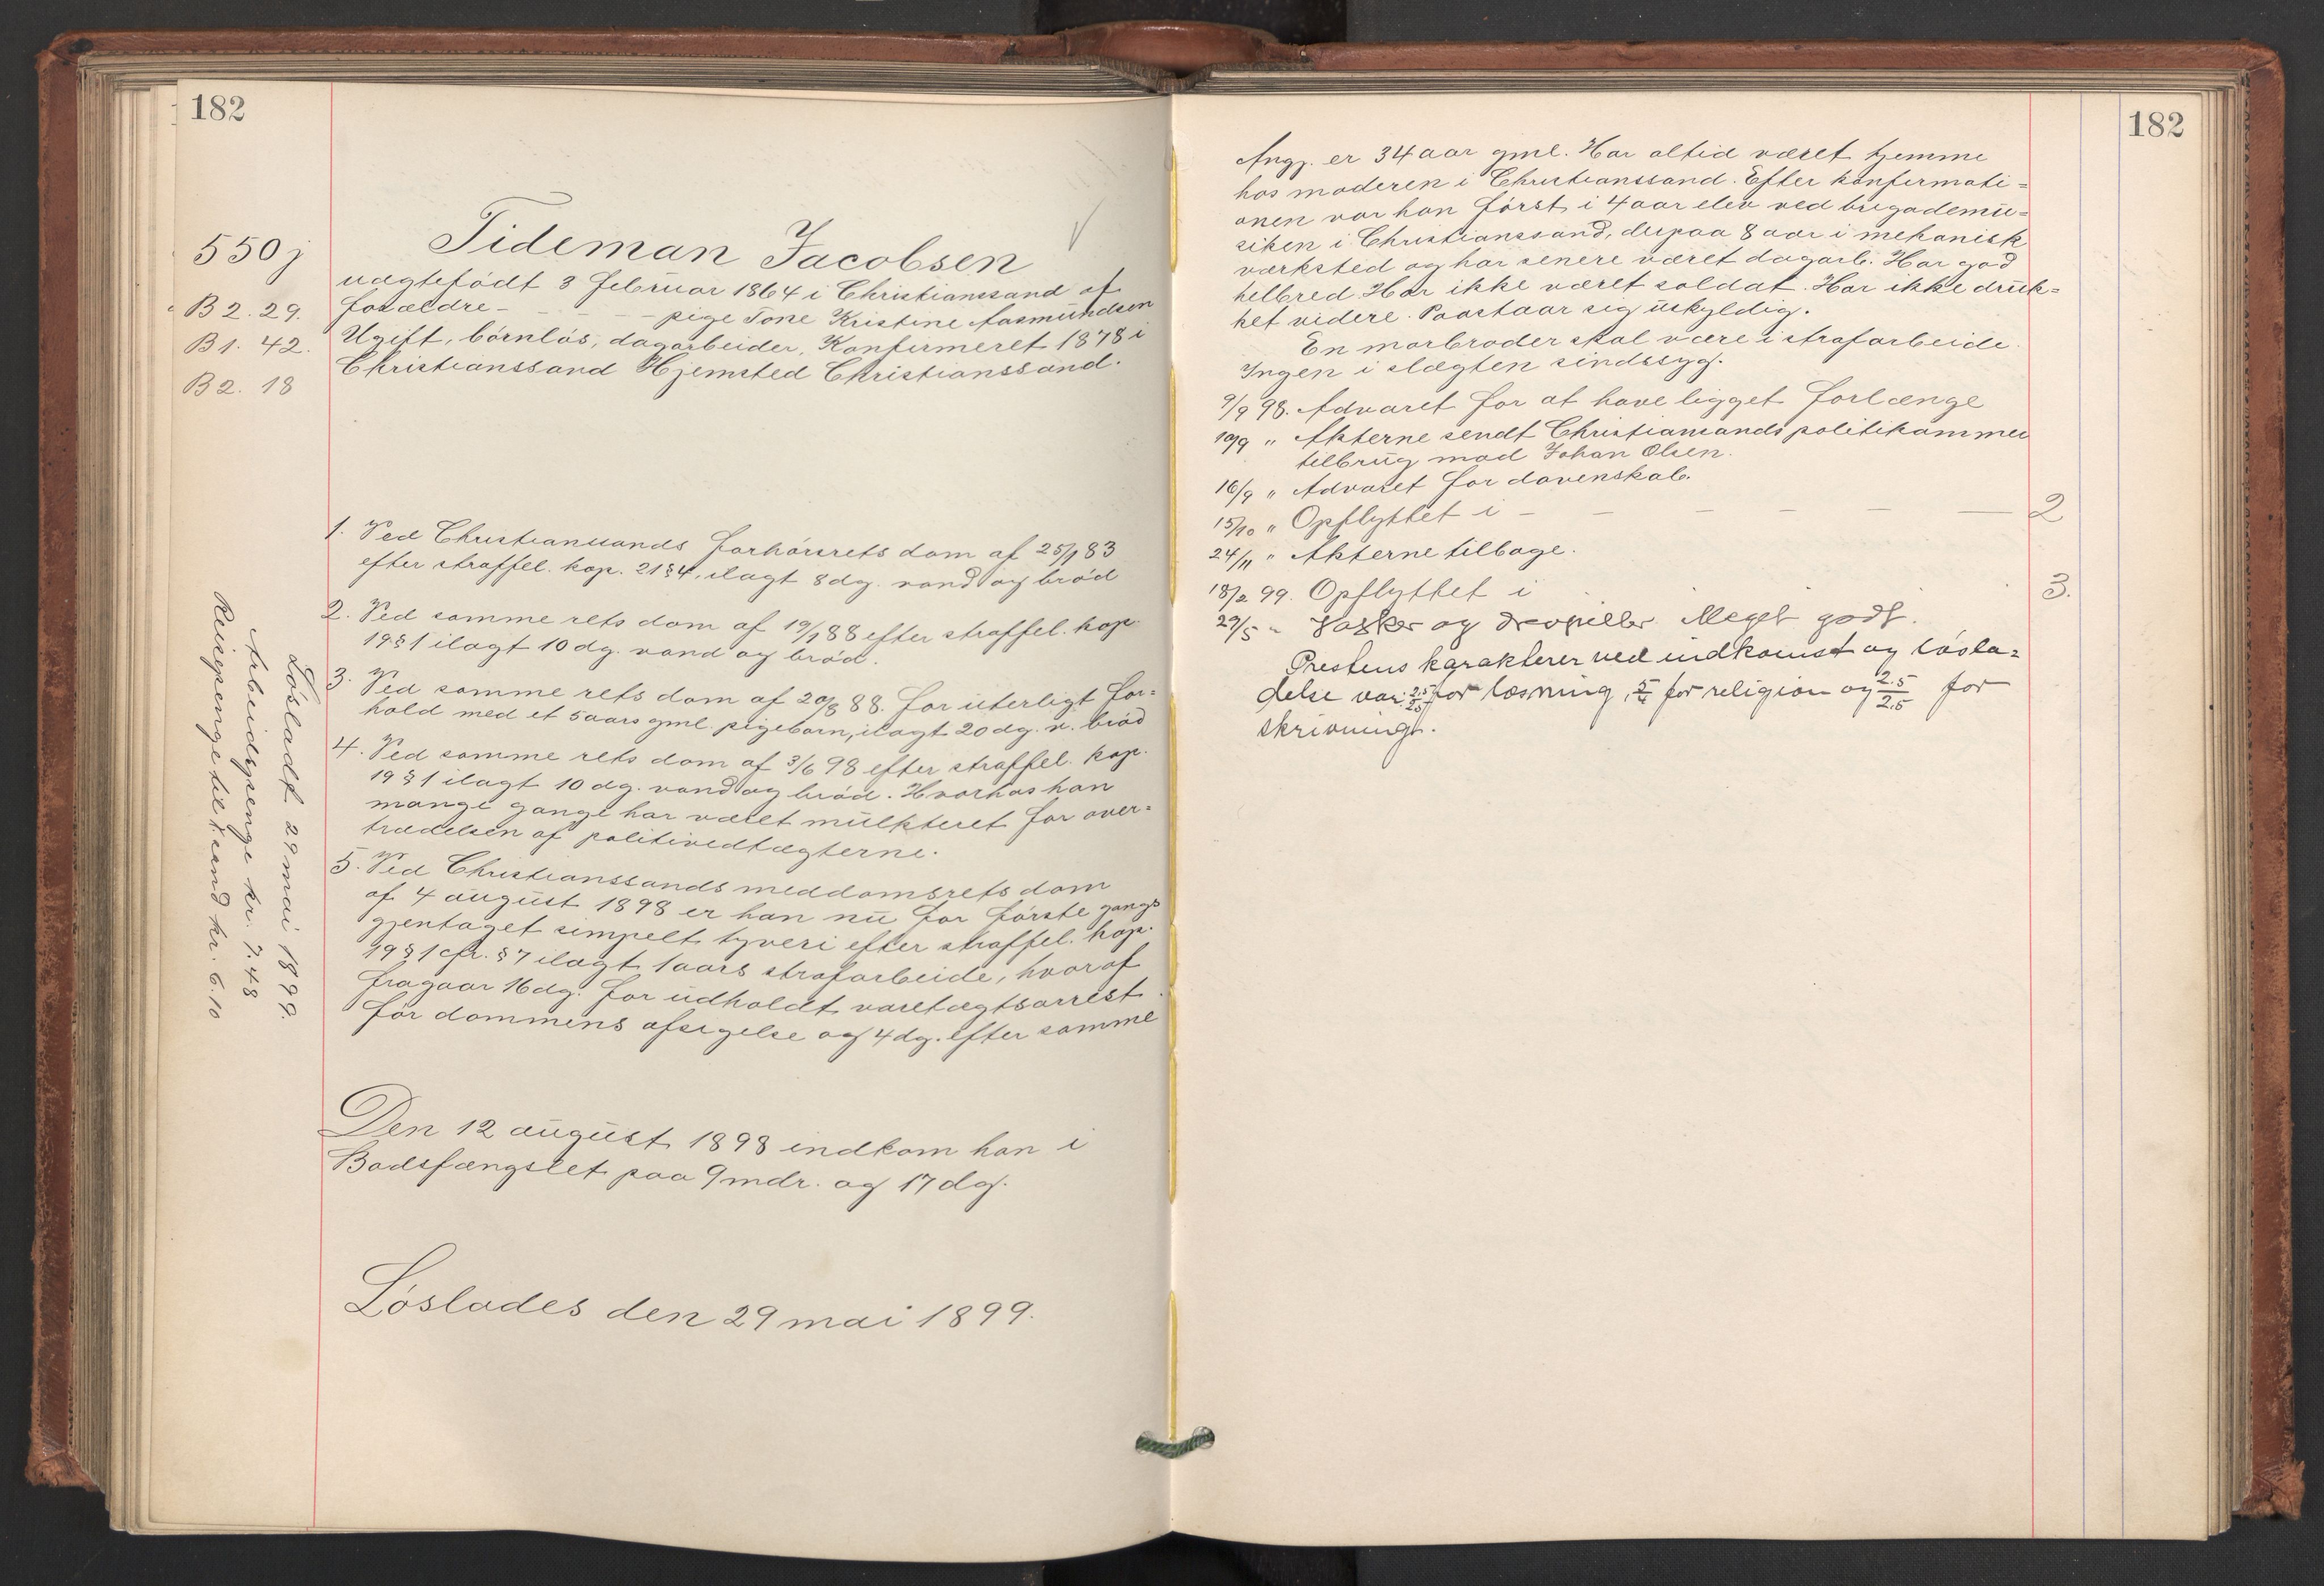 182
550 j
B 2. 29.
B 1. 42.
B 2. 18
Tideman Jacobsen
uægtefødt 3 februar 1864 i Christianssand af
forældre - - - - pige Tone Kristine Aasmundsen
Ugift, børnløs, dagarbeider, Konfirmeret 1878 i
Christianssand Hjemsted Christianssand.
1. Ved Christianssands forhørsrets dom af 25/1 83
efter straffel. kap. 21 § 4, ilagt 8 dg. vand og brød
2. Ved samme rets dom af 19/1 88 efter straffel. kap.
19 § 1 ilagt 10 dg. vand og brød.
3. Ved samme rets dom af 20/8 88. for uterligt for=
hold med et 5 aars gml. pigebarn, ilagt 20 dg. v. brød
4. Ved samme rets dom af 3/6 98 efter straffel. kap.
19 § 1 ilagt 10 dg. vand og brød. Hvorhos han
mange gange har været mulkteret for over=
trædelsen af politivedtægterne.
5. Ved Christianssands meddomsrets dom
af 4 august 1898 er han nu for første gangs
gjentaget simpelt tyveri efter straffel. kap.
19 § 1 cfr. § 7 ilagt 1 aars strafarbeide, hvoraf
fragaar 16 dg. for udholdt varetægtsarrest
før dommens afsigelse og 4 dg. efter samme
Den 12 august 1898 indkom han i
Bodsfængslet paa 9 mdr. og 17 dg.
Løslades den 29 mai 1899.
Løsladt 29 mai 1899.
Arbeidspenge kr. 7.48
Reisepenge til K.sand kr. 6.10
182
Angj. er 34 aar gml. Har altid været hjemme
hos moderen i Christianssand. Efter konfirmati=
onen var han først i 4 aar elev ved brigademu=
siken i Christianssand, derpaa 8 aar i mekanisk
værksted og har senere været dagarb. Har god
helbred. Har ikke været soldat. Har ikke druk=
ket videre. Paastaar sig uskyldig.
En morbroder skal være i strafarbeide.
Ingen i slægten sindssyg.
9/9 98. Advaret for at have ligget forlænge
10/9 " Akterne sendt Christianssands politikammer
tilbrug mod Johan Olsen.
16/9 " Advaret for dovenskab.
15/10 " Opflyttet i - - - - - - 2
24/11 " Akterne tilbage.
18/2 99. Opflyttet i 3.
29/5 " Sækker og drevpiller. Meget godt.
Prestens karakterer ved indkomst og løsla=
delse var: 2.5/2.5 for læsning, 5/4 for religion og 2.5/2.5 for
skrivning.